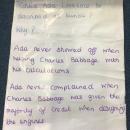 Ada Lovelace to
Why?
Ada never showed off when
helping Charles Babbage with
his calculations
Ada never complained when
Charles Babbage was given the
majority of credit when designing
the engines